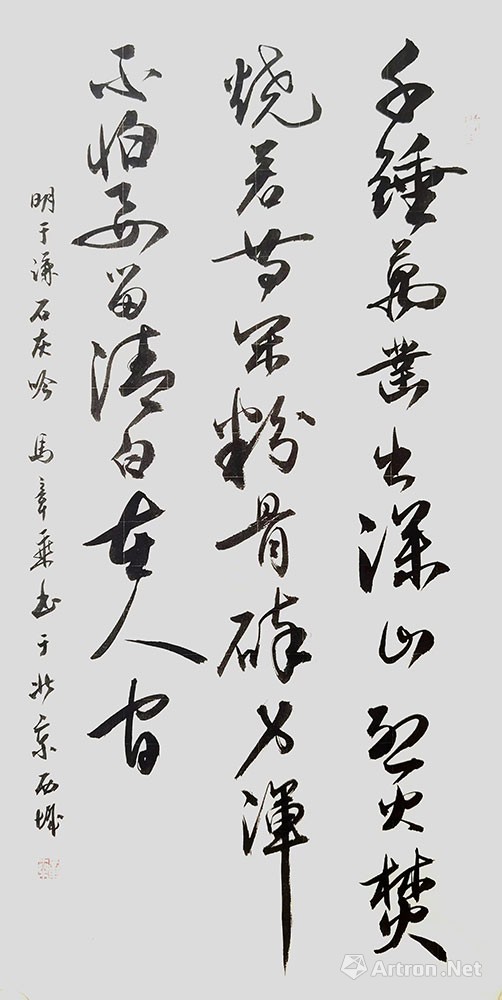 千錘萬凿出深山烈火焚
烧若等闲粉骨碎身渾
不怕要留清白在人间
明于谦石灰吟 馬章乘书于北京西城
Artron.Net